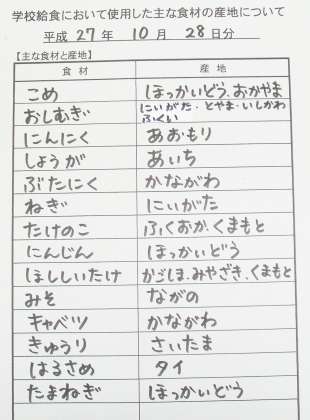 学校給食において使用した主な食材の産地について
平成 27 年 10 月 28 日分
【主な食材と産地】
食材 産地
こめ ほっかいどう、おかやま
おしむぎ にいがた・とやま・いしかわ ふくい
にんにく あおもり
しょうが あいち
ぶたにく かながわ
ねぎ にいがた
たけのこ ふくおか、くまもと
にんじん ほっかいどう
ほししいたけ かごしま、みやざき、くまもと
みそ ながの
キャベツ かながわ
きゅうり さいたま
はるさめ タイ
たまねぎ ほっかいどう